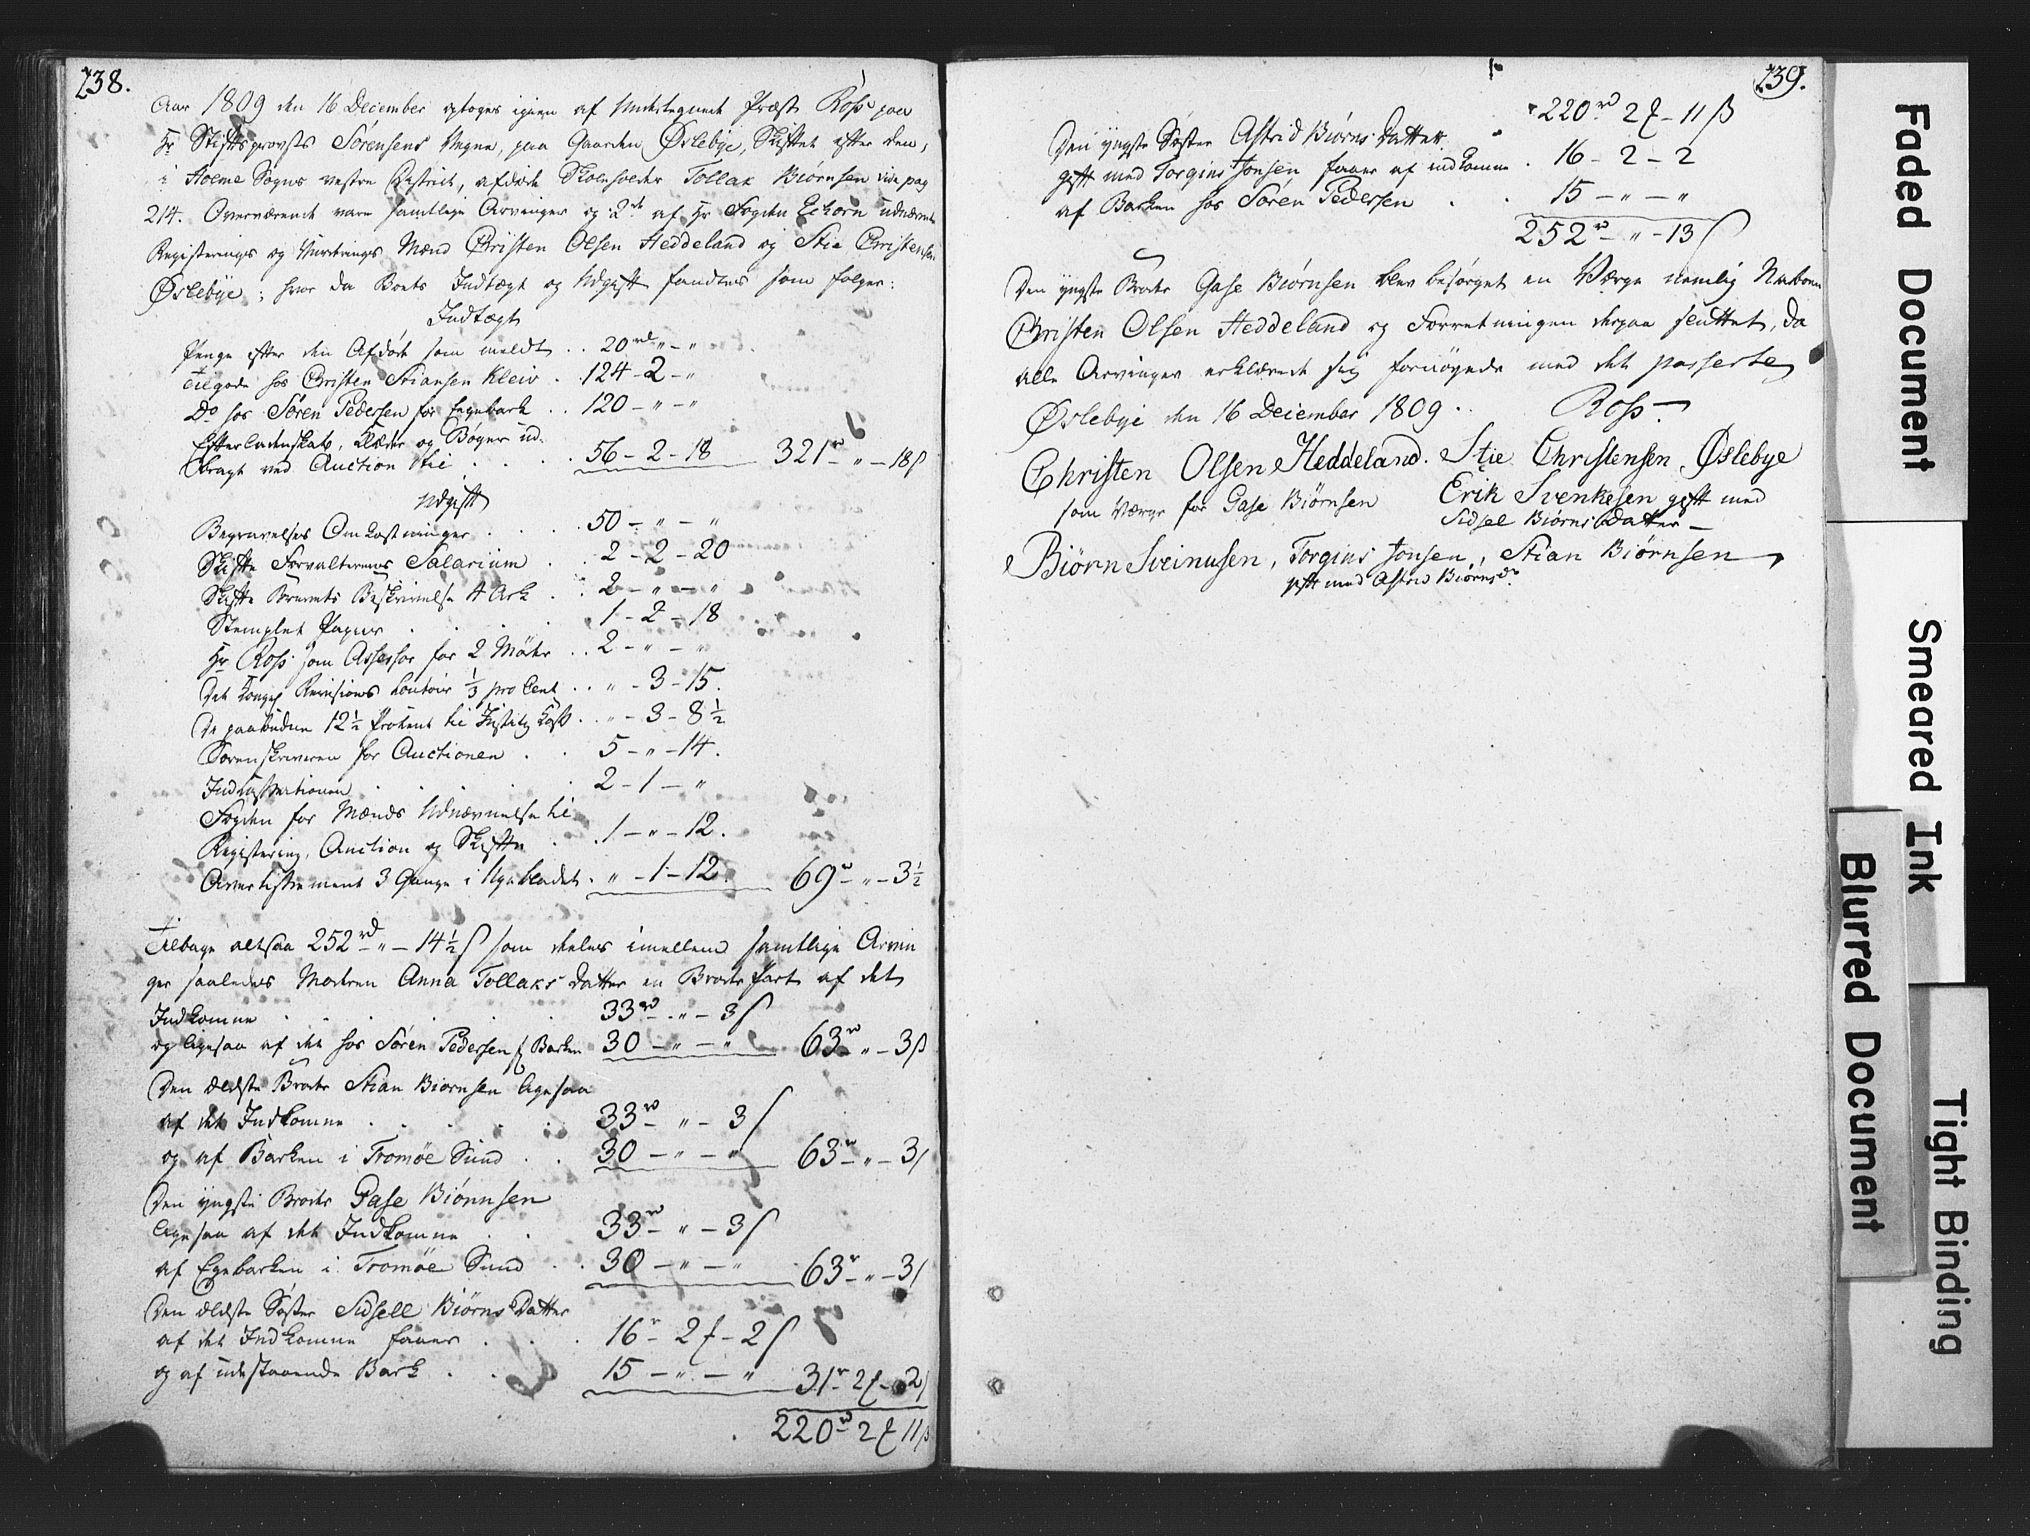 238.
Aar 1809 den 16 December optoges igjen af Undertegnede Præst Ross paa
Hr Stiftsprovsts Sørensens Vegne, paa Gaarden Øslebye, Skiftet efter den,
i Holme Sogns vestre District, afdøde Skoleholder Tollak Biørnsen vide pag
214. Overværende vare samtlige Arvinger og 2de af Hr Fogden Eckorn udnævnte
Registerings og Vurderings Mænd Christen Olsen Heddeland og Stie Christensen
Øslebye; hvor da Boets Indtægt og Udgift fandtes som følger:
Indtægt
Penge efter den Afdøde som meldt . . 20rd " - "
Tilgode hos Christen Stiansen Kleiv . 124 - 2 - "
Do hos Søren Pedersen for Egebark . . 120 - " - "
Efterladenskab, Klæder og Bøger ud-
bragt ved Auction til . . . . 56 - 2 - 18 321r - " - 18ß
Udgift
Begravelses Omkostninger . . . 50 - " - "
Skifte Forvalterens Salarium . . 2 - 2 - 20
Skifte Brevets Beskrivelse 4 Ark . . 2 - " - "
Stemplet Papiir . . . . 1 - 2 - 18
Hr Ross som Assessor for 2 Møder . . 2 - " - "
Det Kongel Revisions Contoir 1/3 pro Cent . . " - 3 - 15.
De paabudne 12 1/2 Procent til Justitz Cass . . " - 3 - 8 1/2
Sorenskriveren for Auctionen . . 5 - " - 14.
Incassationen . . . . 2 - 1 - "
Fogden for Mænds Udnævnelse til
Registering, Auction og Skifte . . 1 - " - 12.
Avertissement 3 Gange i Ugebladet . " - 1 - 12. 69r - " - 3 1/2
Tilbage altsaa 252rd " - 14 1/2 ß som deeles imellem samtlige Arvin
ger saaledes Moderen Anna Tollaks Datter en Broder Part af det
Indkomne . . . . . 33rd - " - 3ß
og ligesaa af det hos Søren Pedersen f Barken 30 - " - " 63r " - 3ß
Den ældste Broder Stian Biørnsen ligesaa
af det Indkomne . . . . . 33rd " - 3ß
og af Barken i Tromøe Sund . . 30 - " - " 63r - " - 3ß
Den yngste Broder Gase Biørnsen
ligesaa af det Indkomne . . 33rd - " - 3ß
af Egebarken i Tromøe Sund . . 30 - " - " 63r - " - 3ß
Den ældste Søster Sidsell Biørns Datter
af det Indkomne faaer . . . 16r - 2 - 2ß
og af udestaaende Bark . . . 15 - " - " 31r - 2 - 2ß
220rd 2 11ß
239.
220rd 2 - 11ß
Den yngste Søster Astrid Biørns Datter
gift med Torgius Jonsen faaer af indkomne . 16 - 2 - 2
af Barken hos Søren Pedersen . . 15 - " - "
252rd - " - 13ß
Den yngste Broder Gase Biørnsen blev besørget en Værge nemlig Naboen
Christen Olsen Heddeland og Forretningen derpaa sluttet, da
alle Arvinger erklærede sig fornøyede med det passerte
Øslebye den 16 December 1809 . . Ross
Christen Olsen Heddeland. Stie Christensen Øslebye
som Værge for Gase Biørnsen Erik Svenkesen gift med
Sidsel Biørns Datter -
Biørn Sveinusen, Torgius Jonsen, Stian Biørnsen
gift med Astrid Biørnsdr
Faded Document
Smeared Ink
Blurred Document
Tight Binding